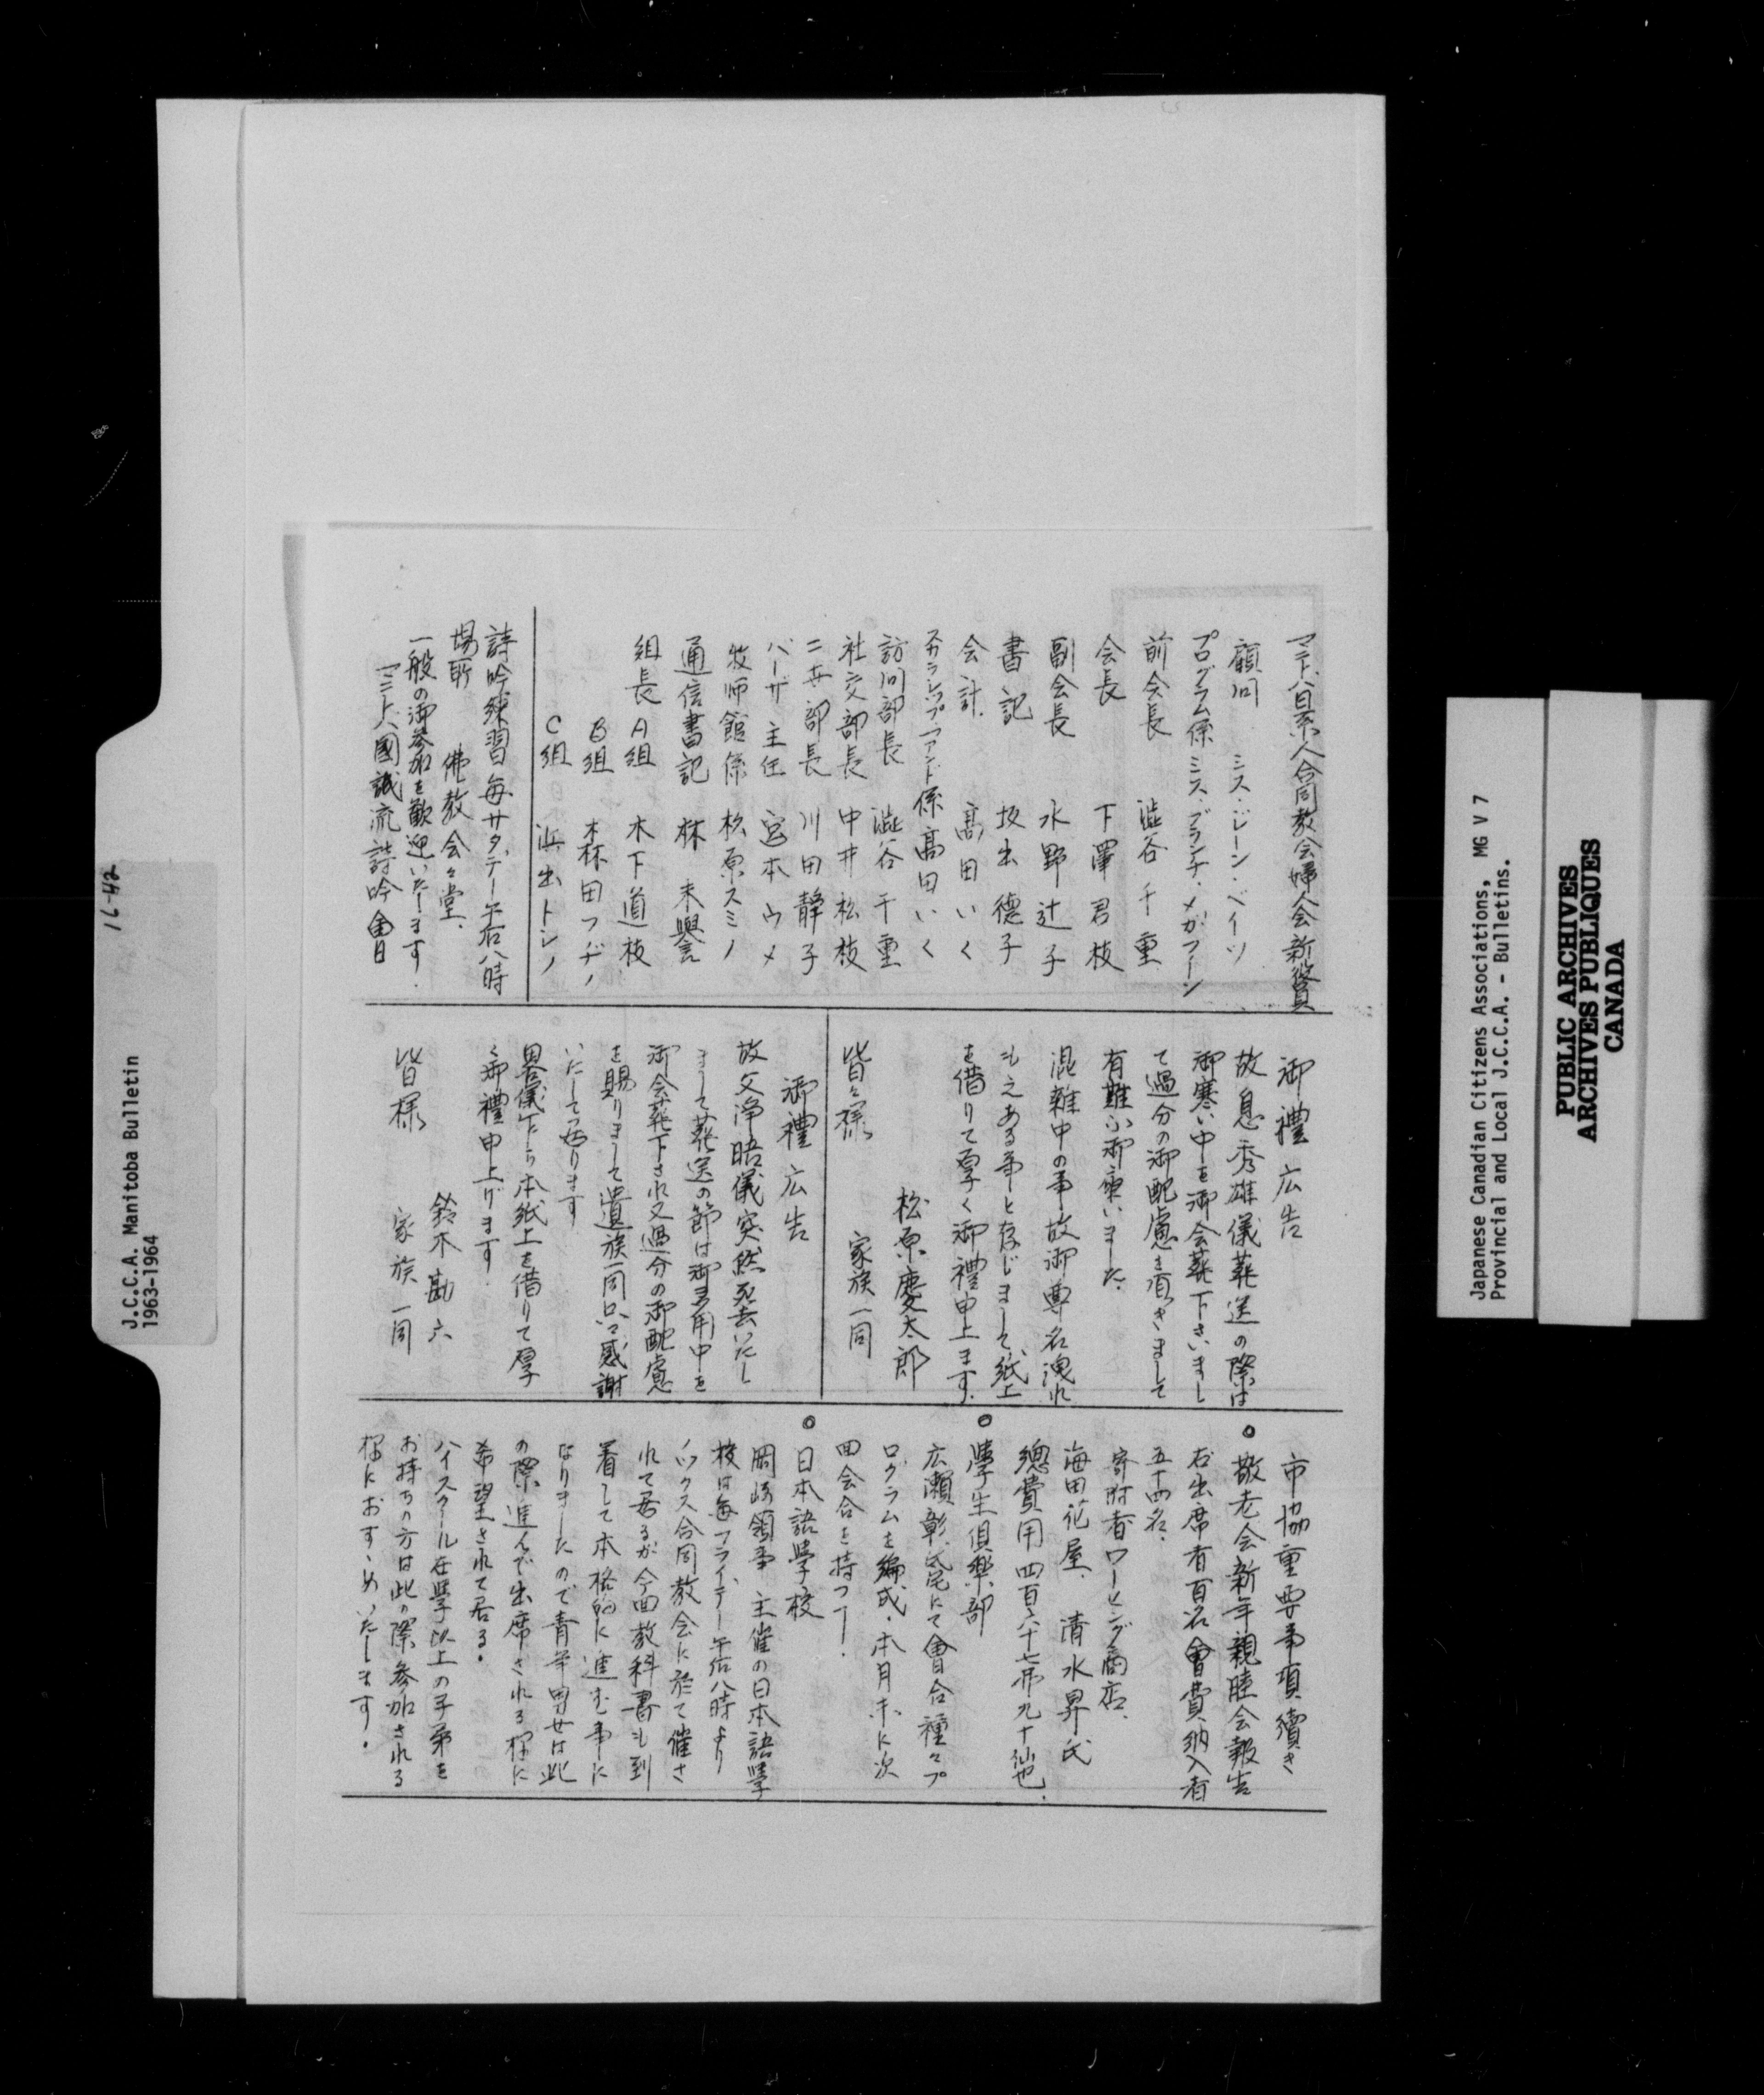 マニトバ日系人合同教会婦人会新役員
顧問 ミス・ジーン・ベイツ
プログラム係 ミス・ブランチ・メガフーン
前会長 澁谷千重
会長 下澤君枝
副会長 水野辻子
書記 坂出徳子
会計 高田いく
スカラシップ・ファンド係 高田いく
訪問部長 澁谷千重
社交部長 中井松枝
二世部長 川田静子
バーザ主任 宮本ウメ
牧師館係 松原スミノ
通信書記 林
組長 A組 木下道枝
B組 森田フヂノ
C組 浜出トシノ
詩吟練習 毎サタデー午后八時
場所 佛教会々堂.
一般の御参加を歓迎いたします.
マニトバ國誠流詩吟會
御禮広告
故息秀雄儀葬送の際は
御寒い中を御会葬下さいまし
て過分の御配慮を頂きまして
有難ふ御座いました.
混雑中の事故御尊名洩れ
もある事と存じまして紙上
を借りて厚く御禮申上ます.
松原慶太郎
家族一同
皆々様
御禮広告
故父浄暗儀突然死去いたし
まして葬送の節は御多用中を
御会葬下され又過分の御配慮
を賜りまして遺族一同只々感謝
いたして居ります
畧儀下ら本紙上を借りて厚
く御禮申上げます.
鈴木勘六
家族一同
皆様
市協重要事項續き
○敬老会新年親睦会報告
右出席者百名會費納入者
五十四名.
寄附者ワーヒング商店.
海田花屋. 清水昇氏
總費用四百六十七弗九十仙也.
○學生倶樂部
広瀬彰氏宅にて會合種々プ
ログラムを編成.本月末に次
回会合を持つ
○日本語學校
岡崎領事主催の日本語學
校は毎フライデー午后八時より
ノックス合同教会に於て催さ
れて居るが今回教科書も到
着して本格的に進む事に
なりましたので青年男女は此
の際進んで出席される様に
希望されて居る.
ハイスクール在學以上の子弟を
お持ちの方は此の際参加される
様におすゝめいたします.
16-42
J.C.C.A. Manitoba Bulletin
1963-1964
Japanese Canadian Citizens Associations, MG V 7
Provincial and Local J.C.C.A. - Bulletins.
PUBLIC ARCHIVES
ARCHIVES PUBLIQUES
CANADA